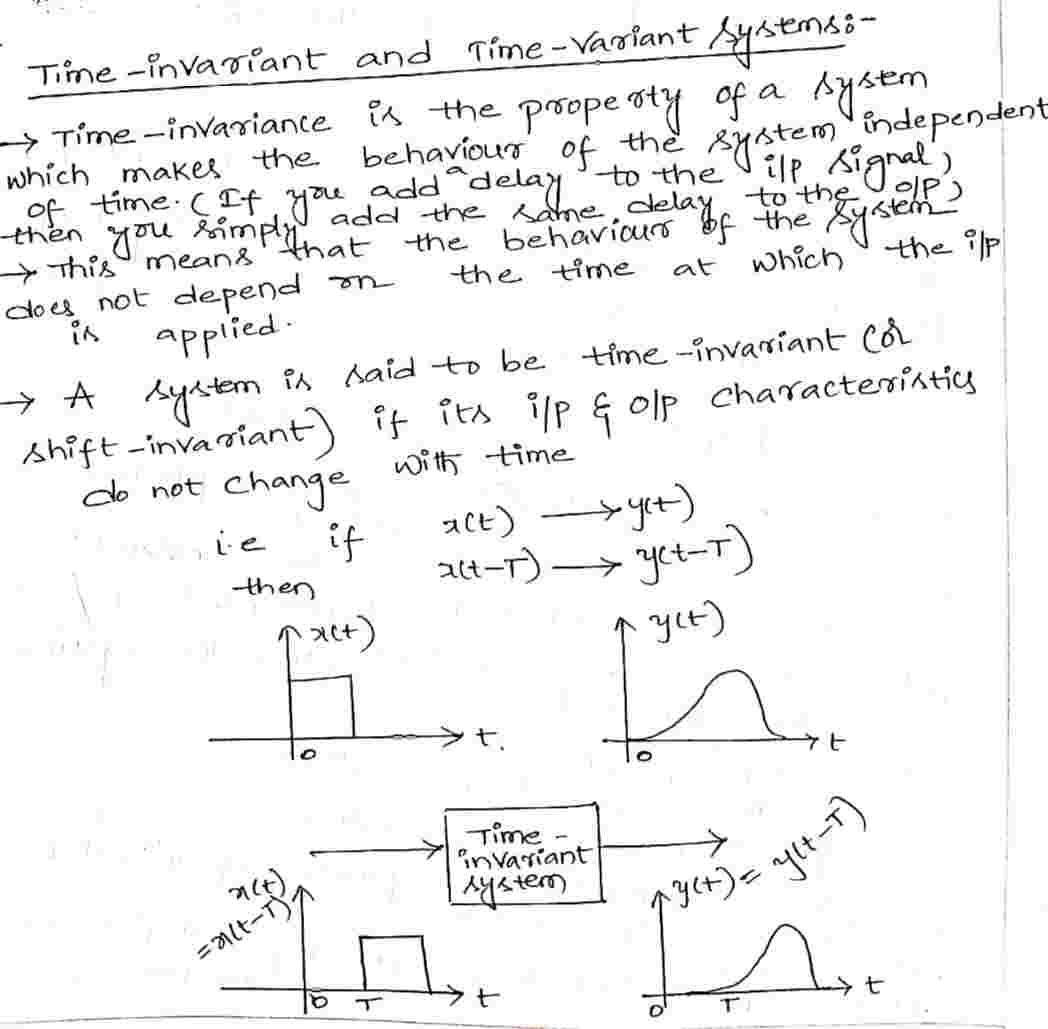 Time-invariant and Time-Variant Systems:-
→ Time-invariance is the property of a system
which makes the behaviour of the system independent
of time. (If you add a delay to the i/p signal,
then you simply add the same delay to the o/p)
→ This means that the behaviour of the system
does not depend on the time at which the i/p
is applied.
→ A system is said to be time-invariant (or
shift-invariant) if its i/p & o/p characteristics
do not change with time
i.e if x(t) → y(t)
then x(t-T) → y(t-T)
x(t) y(t)
0 t. 0 t
Time-
invariant
system
x(t) y(t) = y(t-T)
=x(t-T)
0 T t 0 T t